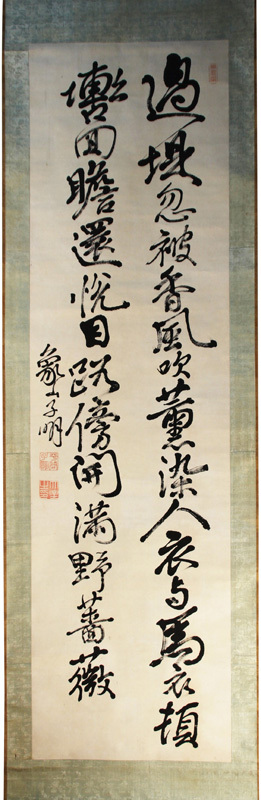 過堤忽被香風吹薰染人衣与馬衣頓
回瞻還悅目路傍開滿野薔薇
象山子明